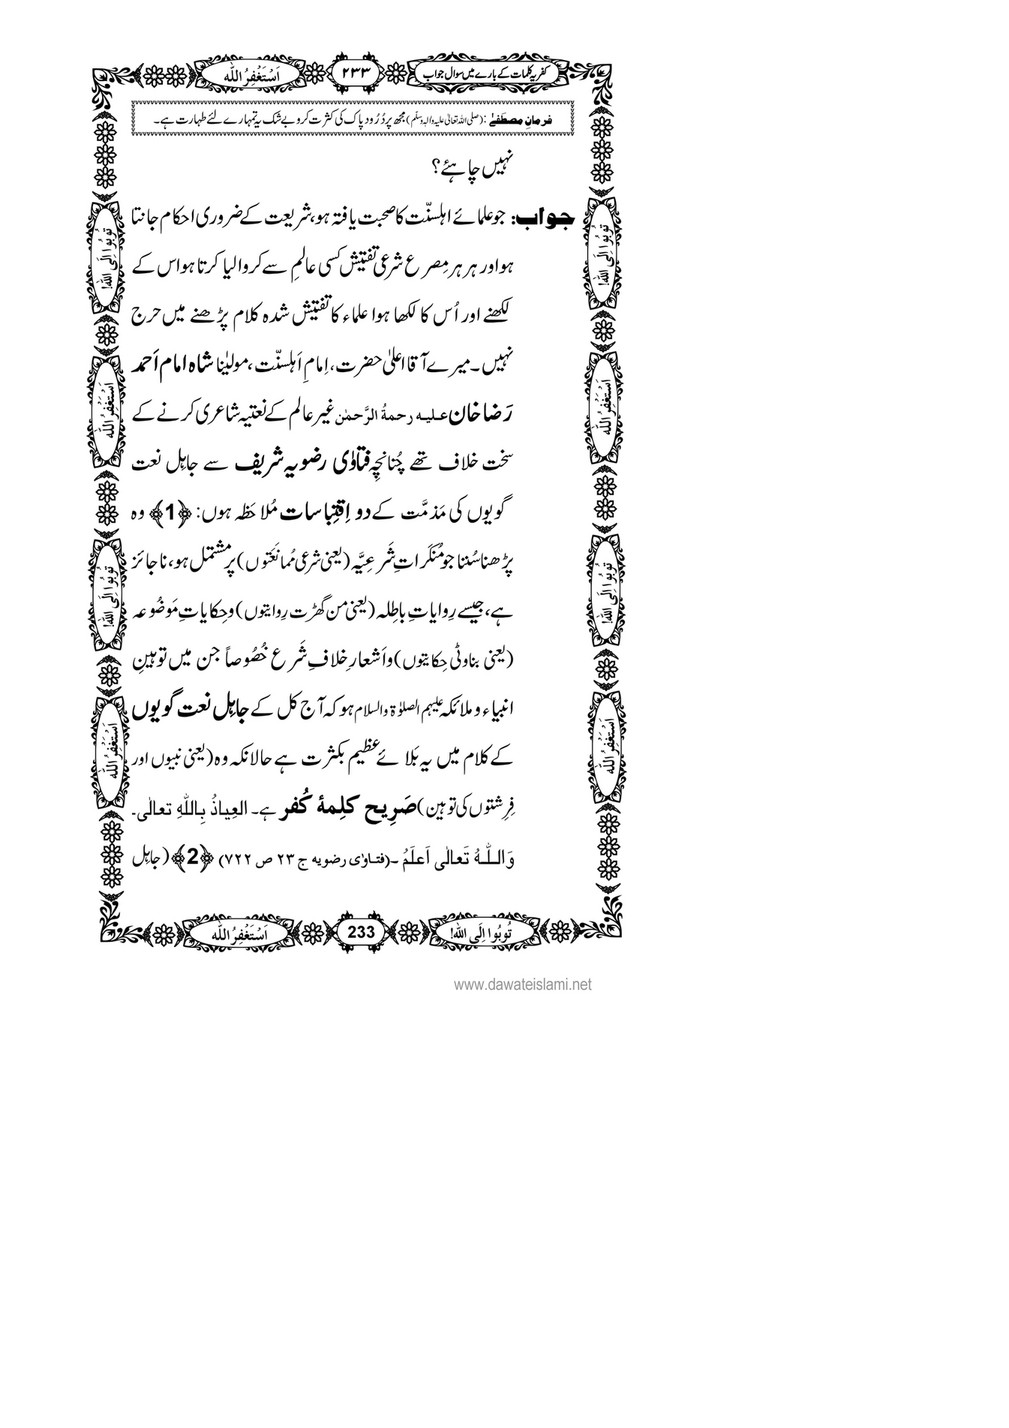 کفریہ کلمات کے بارے میں سوال جواب
۲۳۳
اَسْتَغْفِرُ اللہ
فرمانِ مصطفےٰ :(صلی اللہ تعالیٰ علیہ والہ وسلم) مجھ پر دُرُود پاک کی کثرت کرو بے شک یہ تمہارے لئے طہارت ہے۔
نہیں چاہئے؟
جواب: جو علمائے اہلسنّت کا صحبت یافتہ ہو، شریعت کے ضروری احکام جانتا
ہو اور ہر ہر مِصرع شرعی تفتیش کسی عالِم سے کروا لیا کرتا ہو اس کے
لکھنے اور اُس کا لکھا ہوا علماء کا تفتیش شدہ کلام پڑھنے میں حرج
نہیں۔ میرے آقا اعلیٰ حضرت، اِمامِ اَہلسنّت، مولیٰنا شاہ امام اَحمد
رَضا خان علیہ رحمۃُ الرَّحمٰن غیر عالم کے نعتیہ شاعری کرنے کے
سخت خلاف تھے چُنانچِہ فتاوٰی رضویہ شریف سے جاہِل نعت
گویوں کی مَذمَّت کے دو اِقتِباسات مُلاحَظہ ہوں: ﴿1﴾ وہ
پڑھنا سُننا جو مُنکَراتِ شَرعِیَّہ (یعنی شرعی مُمانَعَتوں) پر مشتمل ہو، ناجائز
ہے، جیسے رِوایاتِ باطِلہ (یعنی من گھڑت رِوایتوں) و حِکایاتِ مَوضُوعہ
(یعنی بناوٹی حِکایتوں) و اَشعارِ خِلافِ شَرع خُصُوصاً جن میں توہینِ
انبیاء و ملائکہ علیہم الصلوٰۃ والسلام ہو کہ آج کل کے جاہِل نعت گویوں
کے کلام میں یہ بَلائے عظیم بکثرت ہے حالانکہ وہ (یعنی نبیوں اور
فِرِشتوں کی توہین) صَرِیح کلِمۂ کُفر ہے۔ العِیاذُ بِاللہِ تعالٰی۔
وَاللّٰہُ تَعالٰی اَعلَمُ ۔(فتاوٰی رضویہ ج ۲۳ ص ۷۲۲) ﴿2﴾ (جاہِل
تُوبُوا اِلَی اللہ!
اَسْتَغْفِرُ اللہ
تُوبُوا اِلَی اللہ!
اَسْتَغْفِرُ اللہ
تُوبُوا اِلَی اللہ!
اَسْتَغْفِرُ اللہ
تُوبُوا اِلَی اللہ!
اَسْتَغْفِرُ اللہ
تُوبُوا اِلَی اللہ!
233
اَسْتَغْفِرُ اللہ
www.dawateislami.net